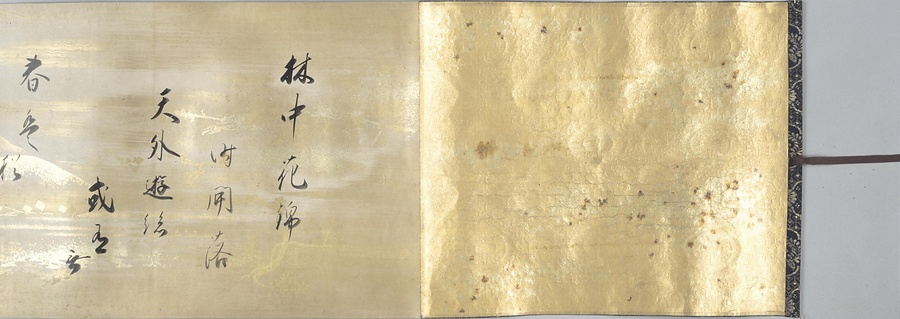 林中花錦
時開落
天外遊絲
或有無
春